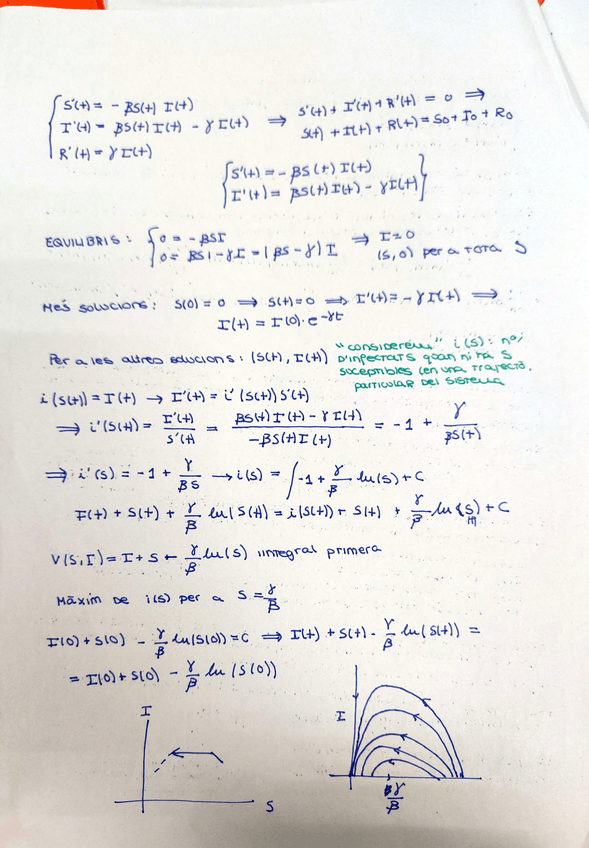 S'(t) = - βS(t) I(t)
I'(t) = βS(t) I(t) - γ I(t) ⇒ S'(t) + I'(t) + R'(t) = 0 ⇒
R'(t) = γ I(t) S(t) + I(t) + R(t) = S0 + I0 + R0
S'(t) = - βS(t) I(t)
I'(t) = βS(t) I(t) - γI(t)
EQUILIBRIS: 0 = -βSI ⇒ I=0
0 = βSI - γI = (βS - γ) I (S, 0) per a TOTA S
MÉS SOLUCIONS: S(0) = 0 ⇒ S(t) = 0 ⇒ I'(t) = - γ I(t) ⇒
I(t) = I(0) · e^-γt
Per a les altres solucions: (S(t), I(t))
"considerem" i(S): nº
D'infectats quan hi ha S
susceptibles (en una trajectò.
particular del sistema
i(S(t)) = I(t) → I'(t) = i'(S(t)) S'(t)
⇒ i'(S(t)) = I'(t)/S'(t) = (βS(t) I(t) - γ I(t))/(-βS(t) I(t)) = -1 + γ/(βS(t))
⇒ i'(S) = -1 + γ/(βS) → i(S) = ∫ -1 + γ/β ln(S) + C
I(t) + S(t) + γ/β ln(S(t)) = i(S(t)) + S(t) + γ/β ln(S(t)) + C
V(S, I) = I + S - γ/β ln(S) integral primera
Màxim de i(S) per a S = γ/β
I(0) + S(0) - γ/β ln(S(0)) = C ⇒ I(t) + S(t) - γ/β ln(S(t)) =
= I(0) + S(0) - γ/β ln(S(0))
I
S
I
γ/β